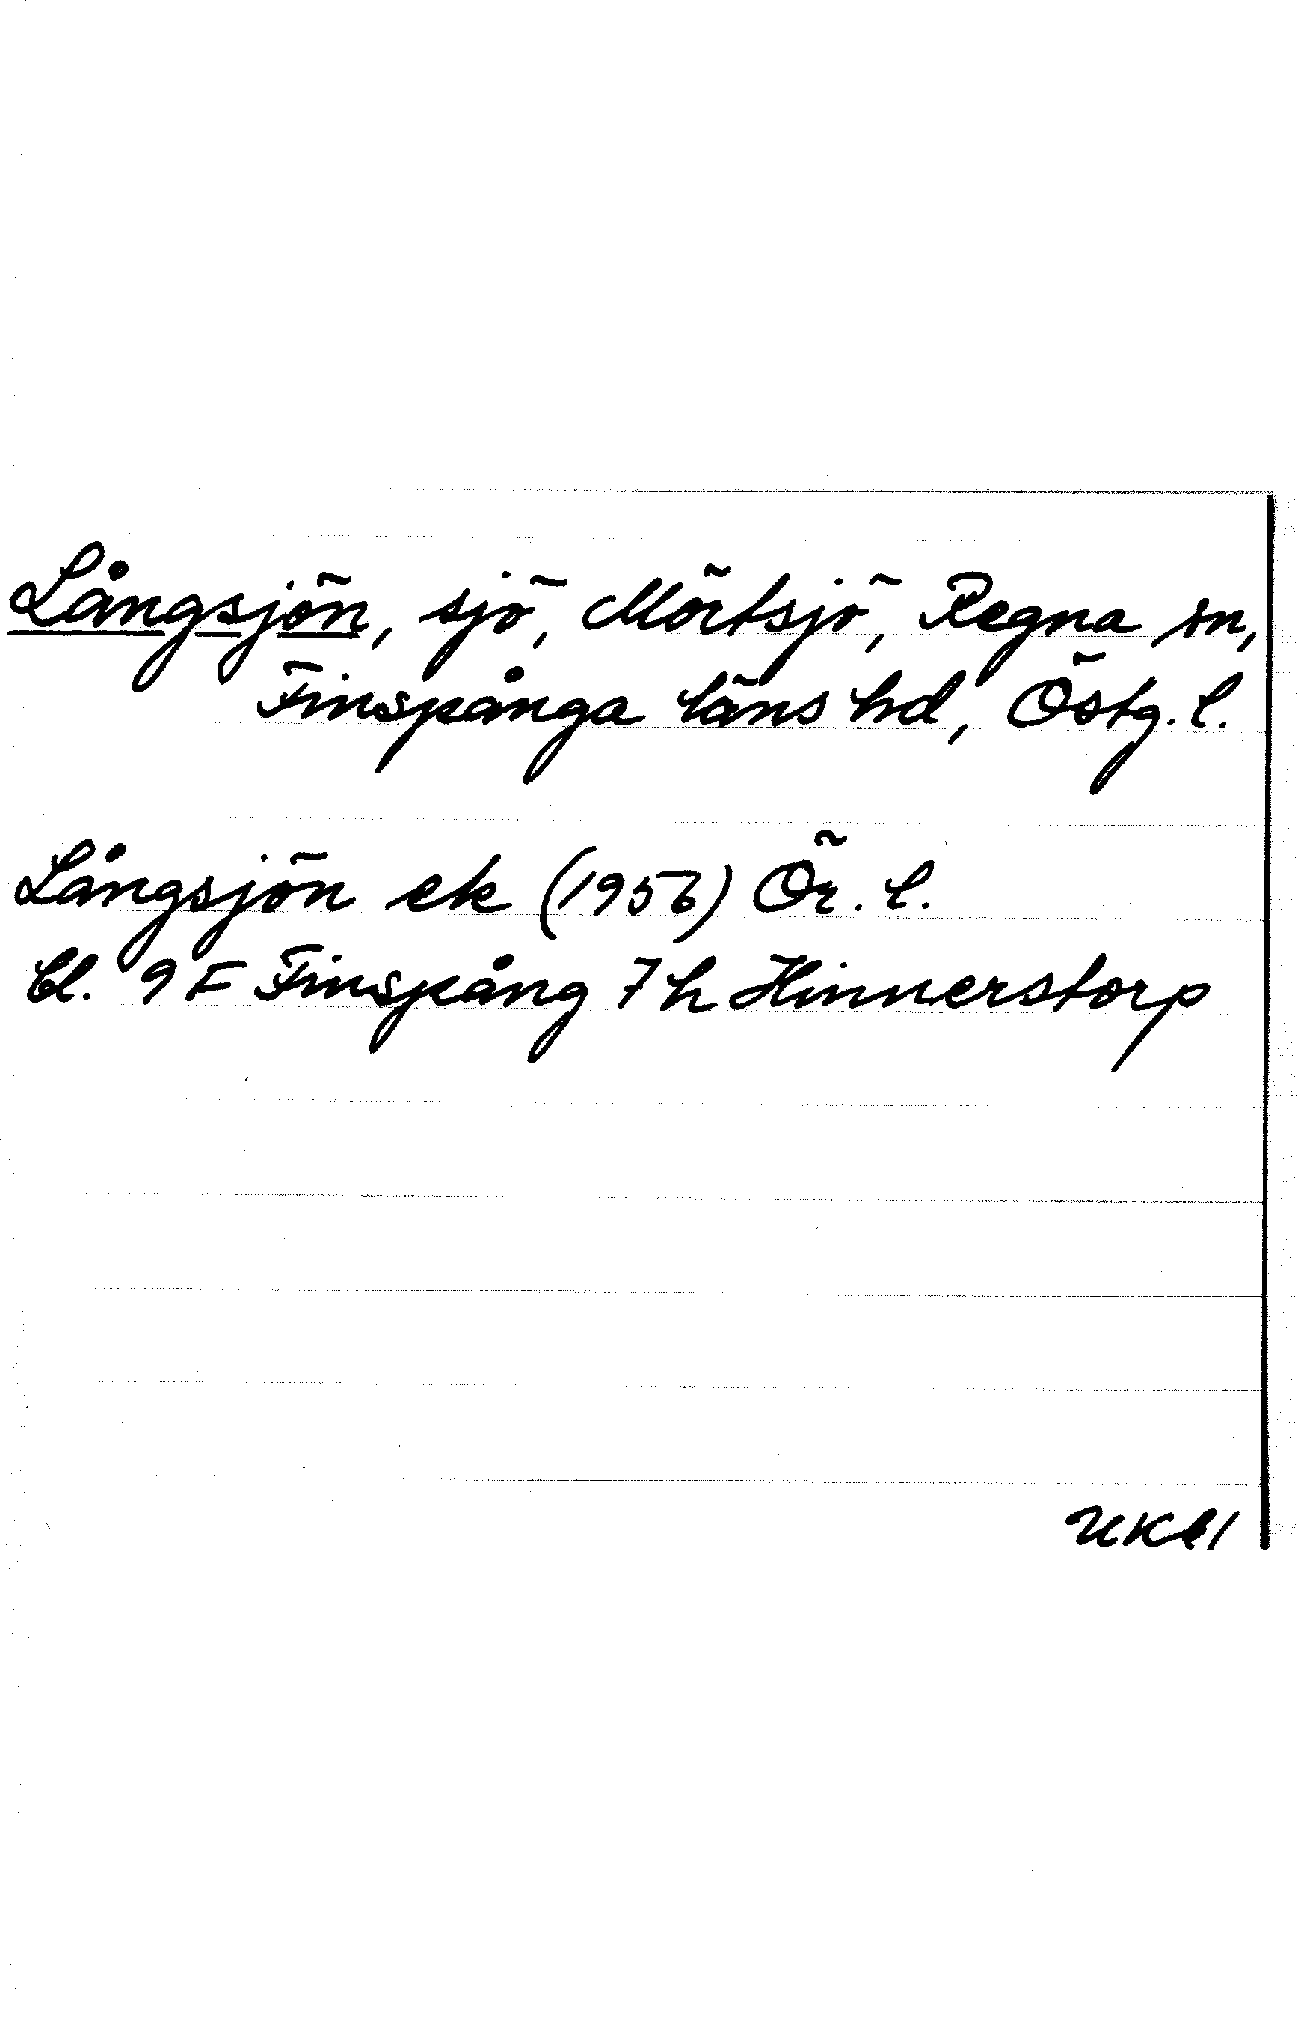 Långsjön, sjö, Mörtsjö, Regna sn,
Finspånga läns hd, Östg. l.
Långsjön ek (1956) Ör. l.
bl. 9 F Finspång 7 h Hinnerstorp